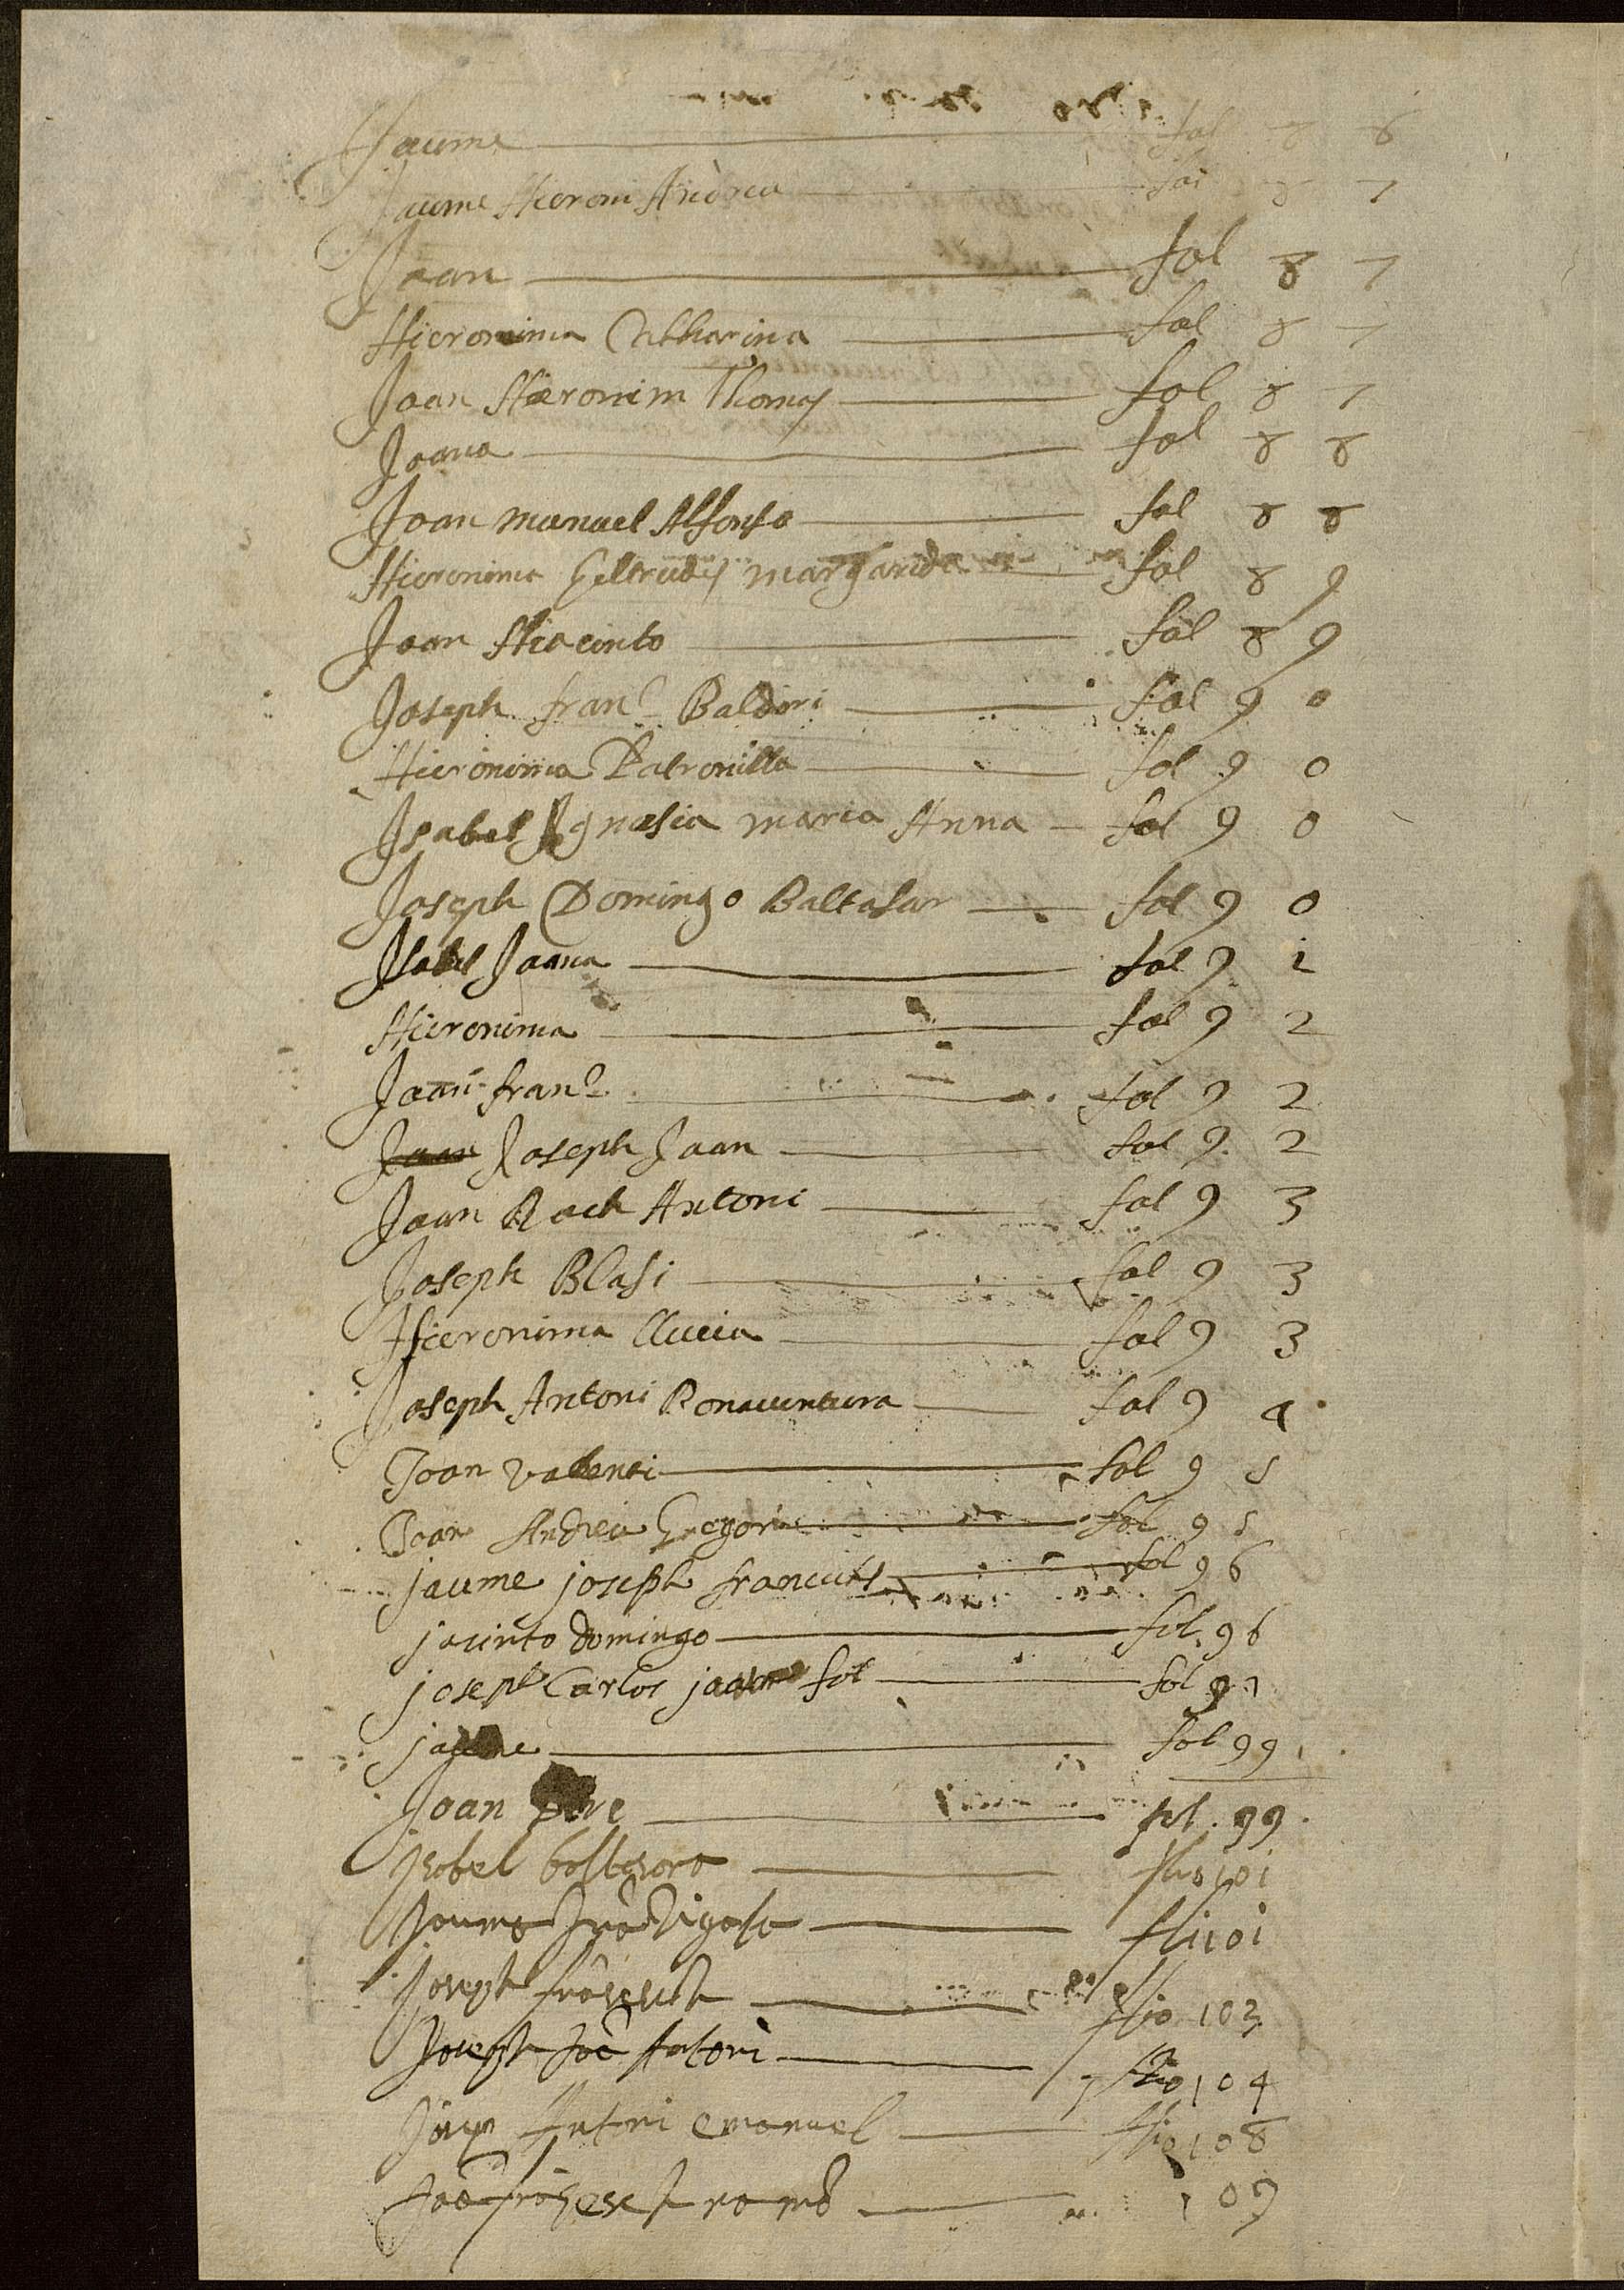 Jaume fol 8 6
Jaume Hieroni Andreu fol 8 7
Joan fol 8 7
Hieronima Catharina fol 8 7
Joan Hieronim Thomas fol 8 7
Joana fol 8 8
Joan manuel Alfonso fol 8 8
Hieronima Geltrudis margarida fol 8 9
Joan Hiacinto fol 8 9
Joseph franc Baldiri fol 9 0
Hieronima Patronilla fol 9 0
Isabel Ignasia maria Anna fol 9 0
Joseph Domingo Baltasar fol 9 0
Isabel Joana fol 9 1
Hieronima fol 9 2
Joan franc fol 9 2
Joan Joseph Joan fol 9 2
Joan Roch Antoni fol 9 3
Joseph Blasi fol 9 3
Hieronima Llucia fol 9 3
Joseph Antoni Bonaventura fol 9 4
Joan valenti fol 9 5
Joan Andreu Gregori fol 9 5
jaume joseph francisco fol 96
jacinto domingo fol. 96
joseph Carlos fol fol 97
jaume fol 99
Joan pere fol. 99
Isabel 101
Jaume 101
Joseph 103
Joseph Antoni 104
Antoni emanuel 108
109